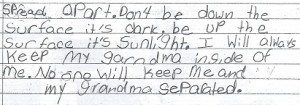 spread apart. Don't be down the
surface it's dark, be up the
surface it's sunlight. I will always
keep my garndma inside of
me. No one will keep me and
my grandma separated.